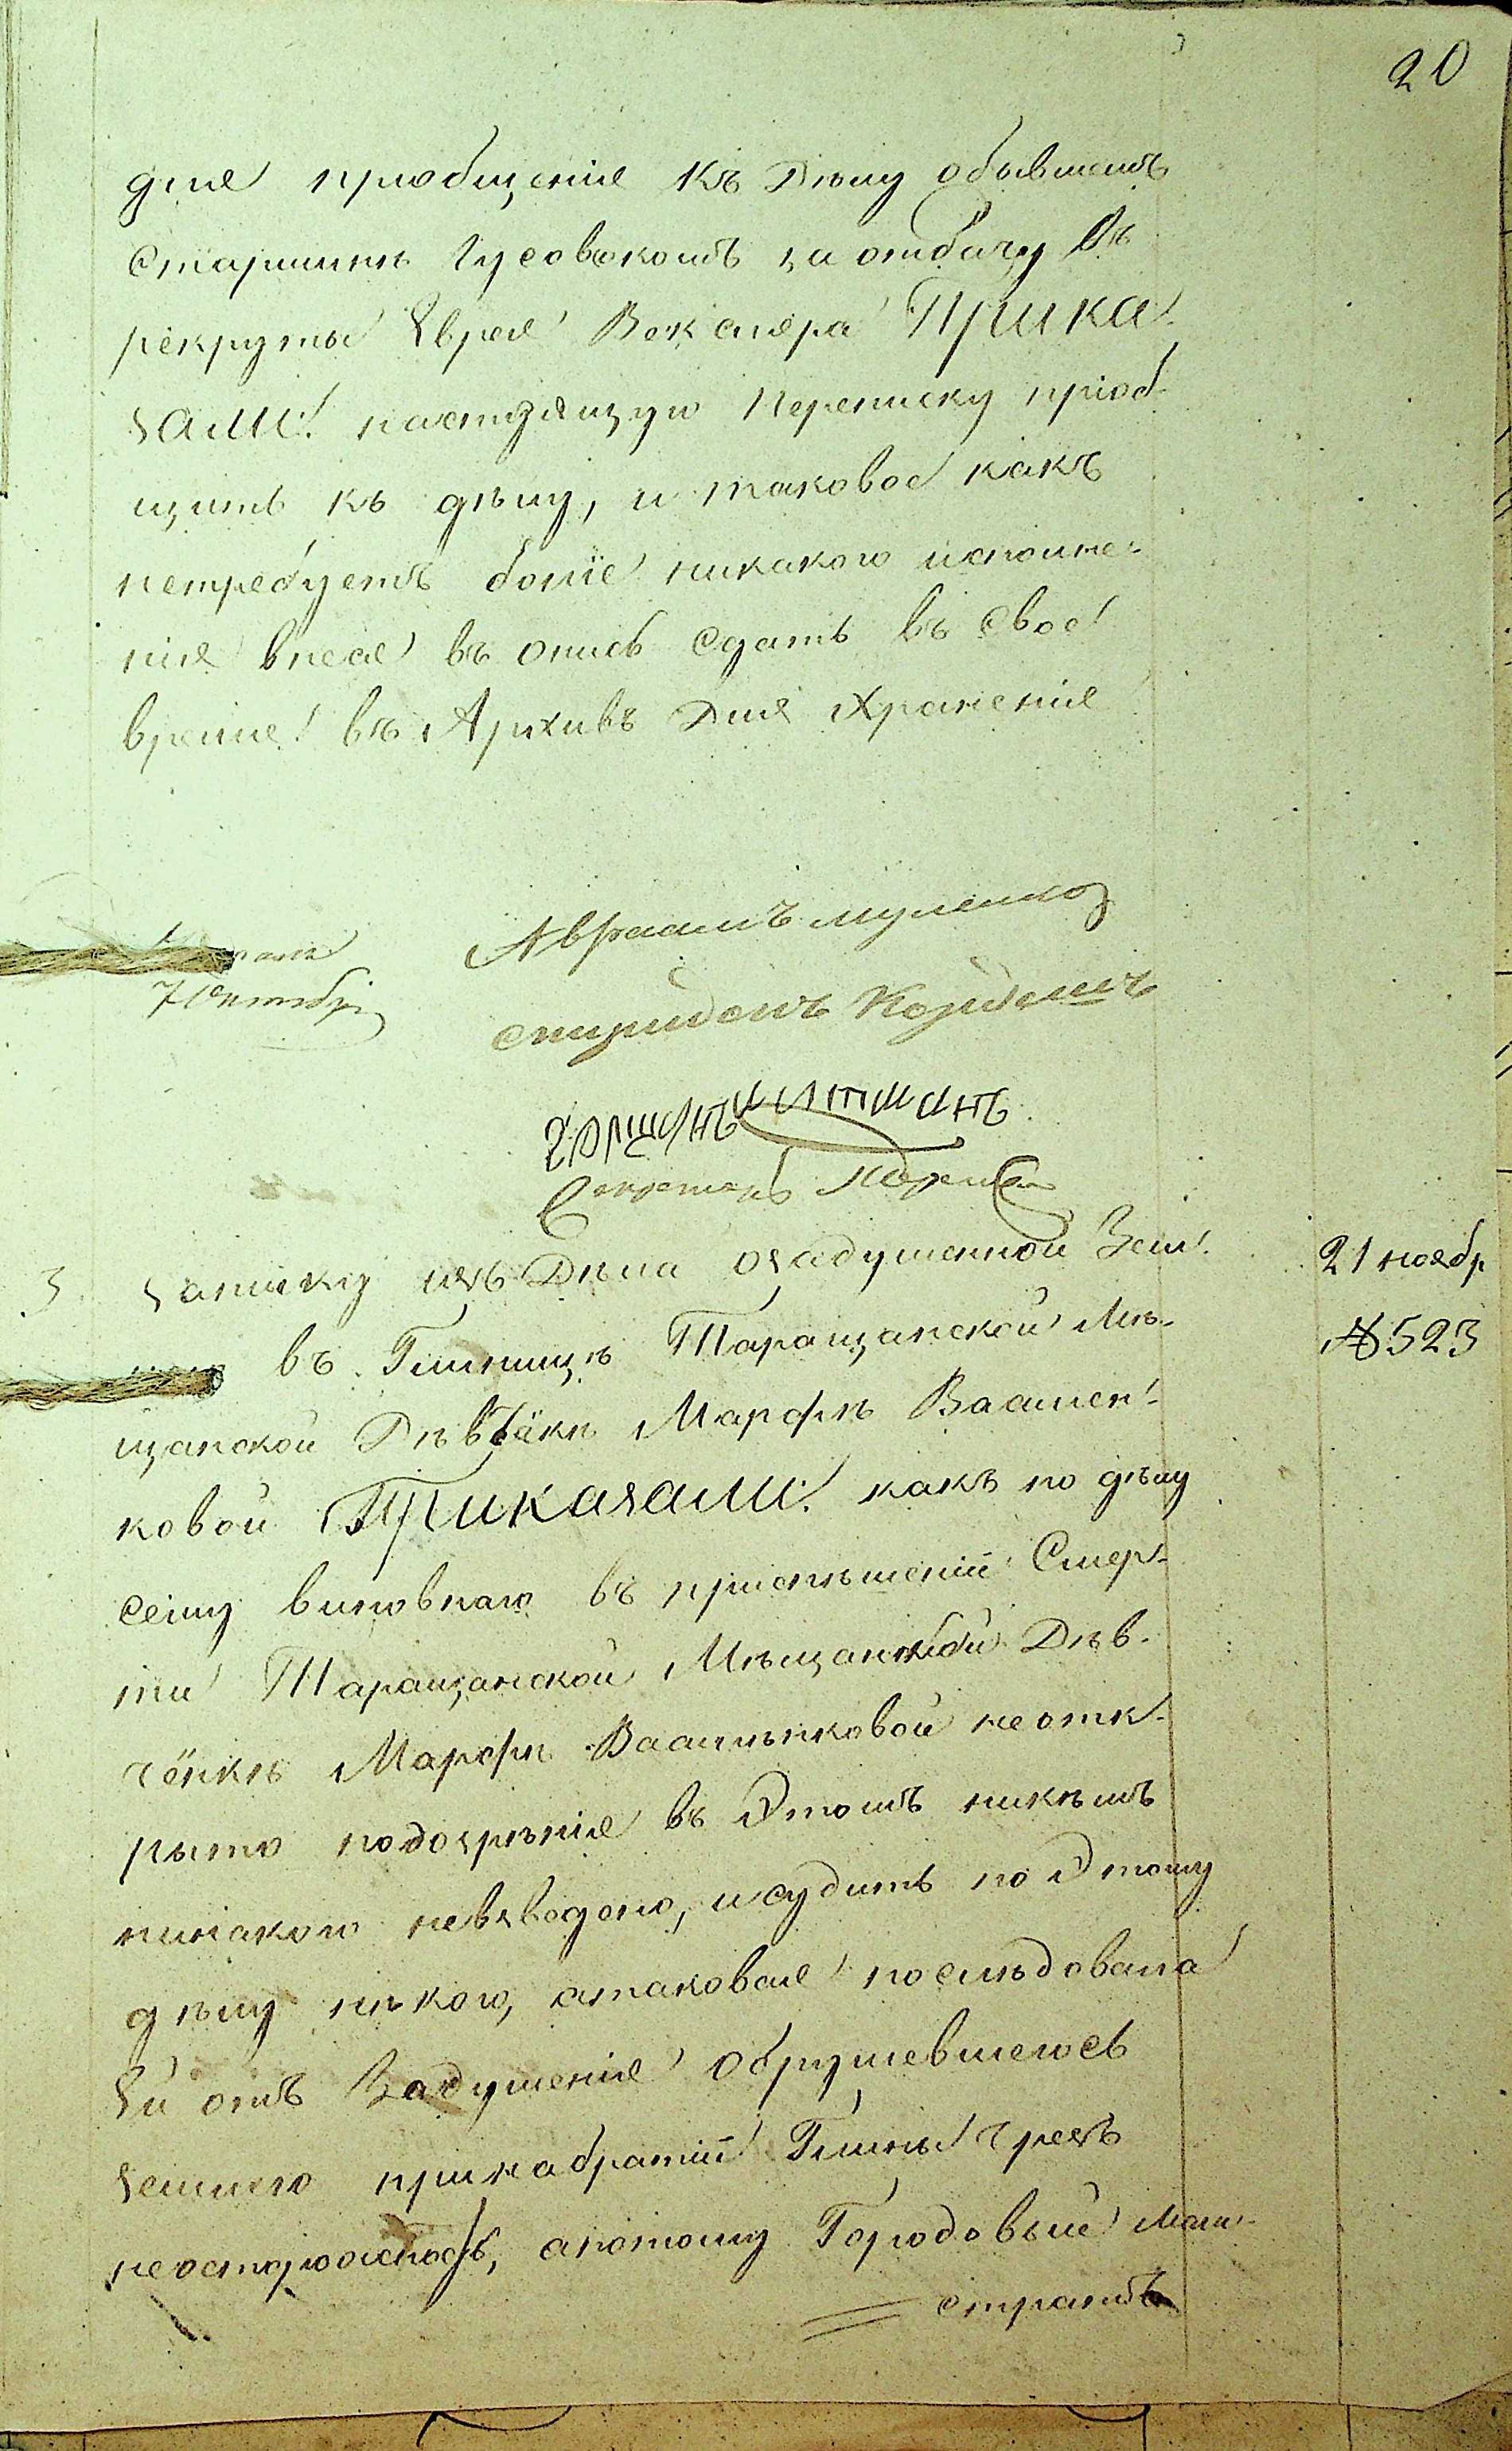 20
для приобщенія къ Дѣлу обывшемъ
Старшинѣ Гусовскомъ за отдачу въ
рекруты Еврея Векслера Прика-
зали: настоящую переписку пріоб-
щить къ дѣлу, и таковое какъ
нетребуетъ болѣе никакого исполне-
нія внеся въ опись сдать въ свое
время въ Архивъ Для Храненія
Авраамъ
7 Октября
Спиридонъ
Секретарь
3. Записку изъ Дѣла озадушенной Зем-
лею въ Глинищѣ Таращанской Мѣ-
щанской Дѣвчёнкѣ Марфѣ Василен-
ковой Приказали: какъ по дѣлу
сему виновнаго въ причиненіи Смер-
ти Таращанской Мѣщанской Дѣв-
чёнкѣ Марфѣ Василенковой неотк-
рыто подозрѣнія въ Этомъ никѣмъ
нинакого невзведено, и судить по Этому
дѣлу нѣкого, атаковая послѣдовала
Ей отъ Задушенія обрушевшеюсь
землею принабратіи Глины чрезъ
неосторожность, апотому Городовый Маги-
стратъ
21 ноябр
№ 523